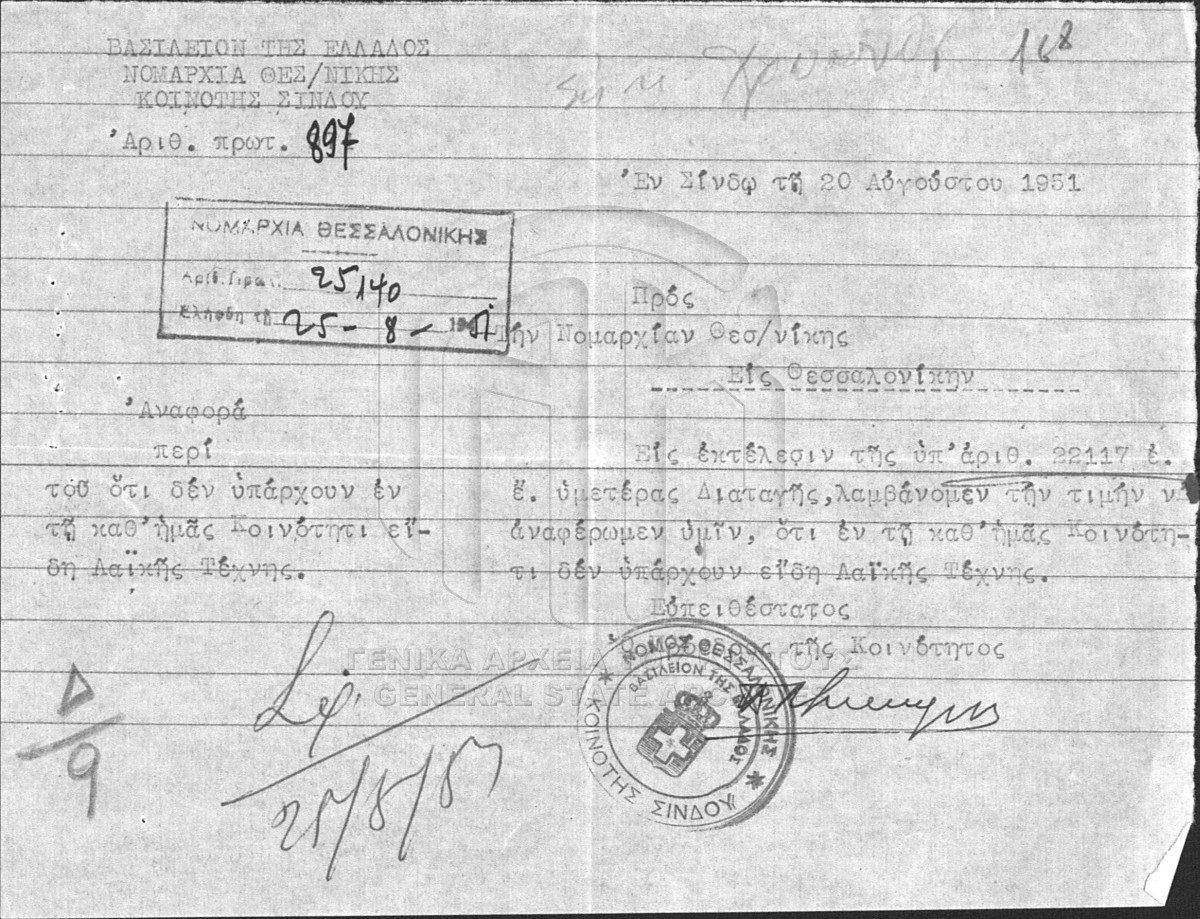 ΒΑΣΙΛΕΙΟΝ ΤΗΣ ΕΛΛΑΔΟΣ
ΝΟΜΑΡΧΙΑ ΘΕΣ/ΝΙΚΗΣ
ΚΟΙΝΟΤΗΣ ΣΙΝΔΟΥ
Ἀριθ. πρωτ. 897
168
Ἐν Σίνδῳ τῇ 20 Αὐγούστου 1951
ΝΟΜΑΡΧΙΑ ΘΕΣΣΑΛΟΝΙΚΗΣ
Ἀριθ. Πρωτ. 25140
Ελήφθη τῇ 25 - 8 - 1951
Πρός
Τήν Νομαρχίαν Θεσ/νίκης
Εἰς Θεσσαλονίκην
Ἀναφορά
περί
τοῦ ὅτι δέν ὑπάρχουν ἐν
τῇ καθ'ἡμᾶς Κοινότητι εἴ-
δη Λαϊκῆς Τέχνης.
Εἰς ἐκτέλεσιν τῆς ὑπ'ἀριθ. 22117 ἐ.
ἔ. ὑμετέρας Διαταγῆς,λαμβάνομεν τήν τιμήν ν
ἀναφέρωμεν ὑμῖν, ὅτι ἐν τῇ καθ'ἡμᾶς Κοινότη-
τι δέν ὑπάρχουν εἴδη Λαϊκῆς Τέχνης.
Εὐπειθέστατος
Ὁ Πρόεδρος τῆς Κοινότητος
ΓΕΝΙΚΑ ΑΡΧΕΙΑ ΤΟΥ ΚΡΑΤΟΥΣ
GENERAL STATE ARCHIVES
ΝΟΜΟΣ ΘΕΣΣΑΛΟΝΙΚΗΣ
ΒΑΣΙΛΕΙΟΝ ΤΗΣ ΕΛΛΑΔΟΣ
ΚΟΙΝΟΤΗΣ ΣΙΝΔΟΥ
Δ/9
25/8/51